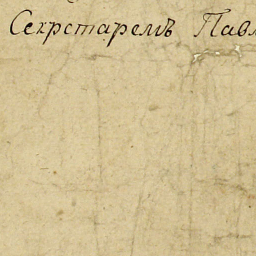 Секретаремъ Павл